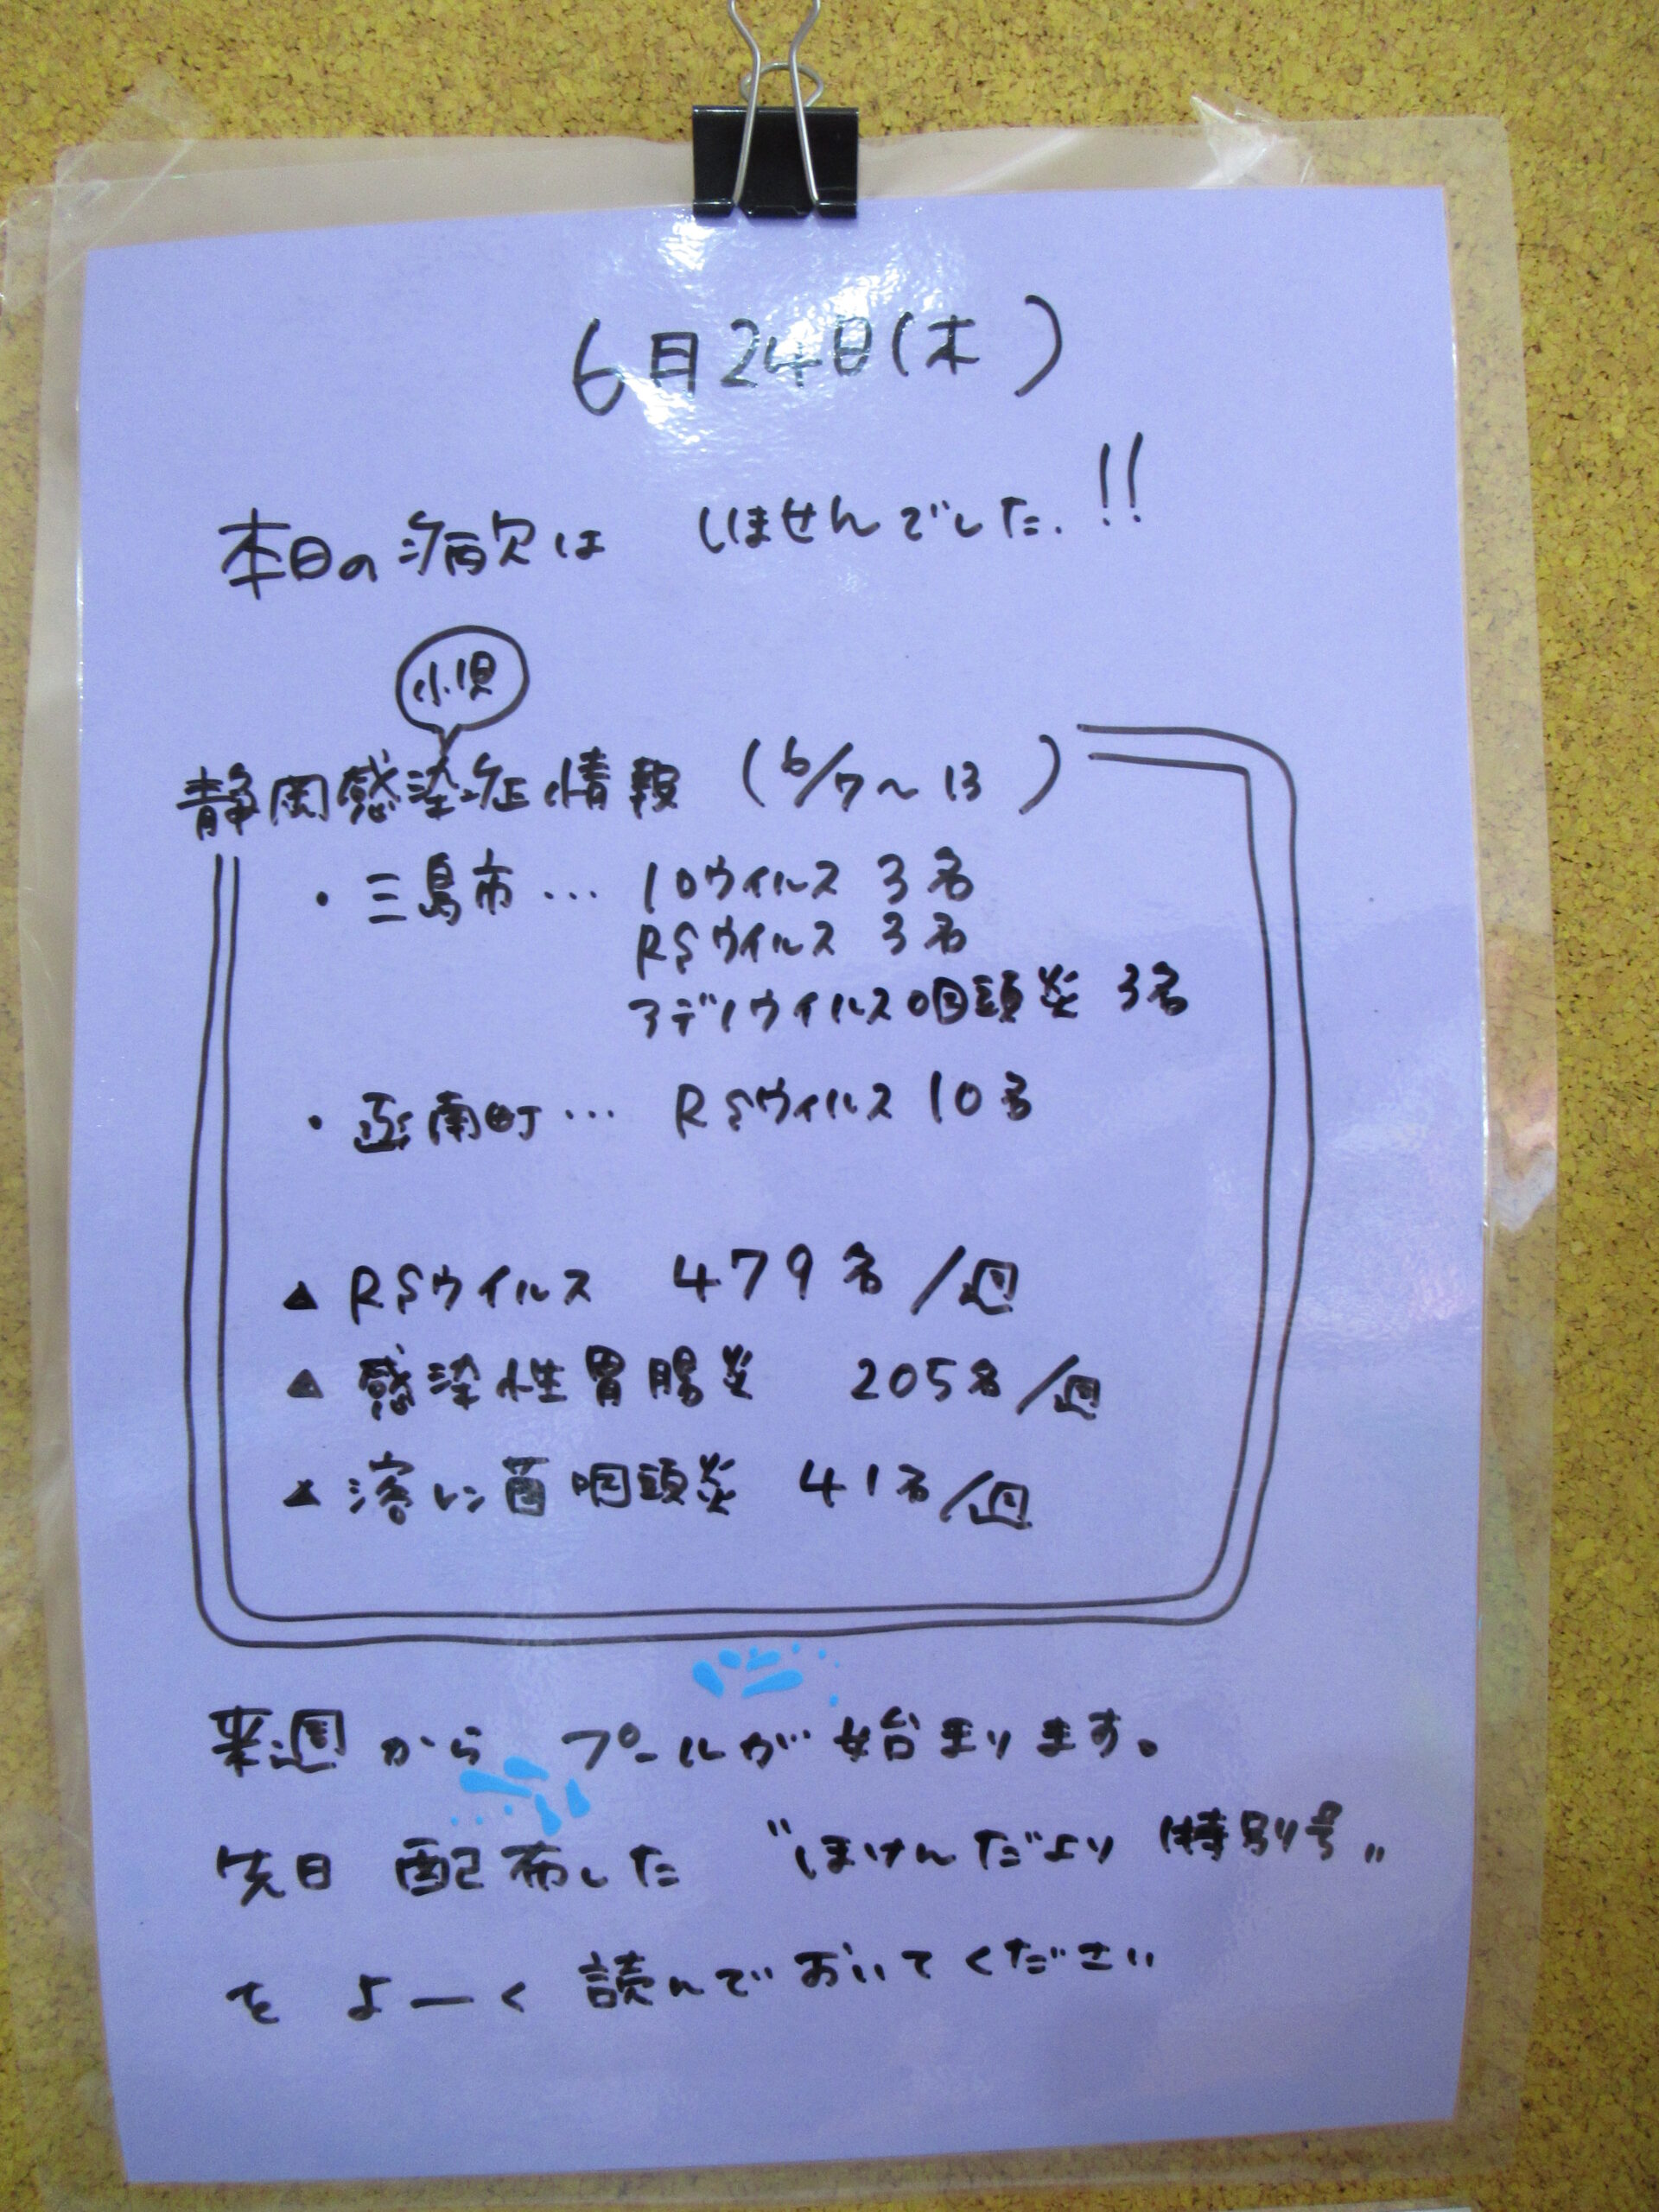 6月24日(木)
本日の病欠は いませんでした.!!
小児
静岡感染症情報 (6/7～13)
・三島市… ロウイルス 3名
RSウイルス 3名
アデノウイルス咽頭炎 3名
・函南町… RSウイルス 10名
▲ RSウイルス 479名/週
▲ 感染性胃腸炎 205名/週
▲ 溶レン菌咽頭炎 41名/週
来週から プールが始まります。
先日 配布した "ほけんだより 特別号"
を よーく 読んでおいてください